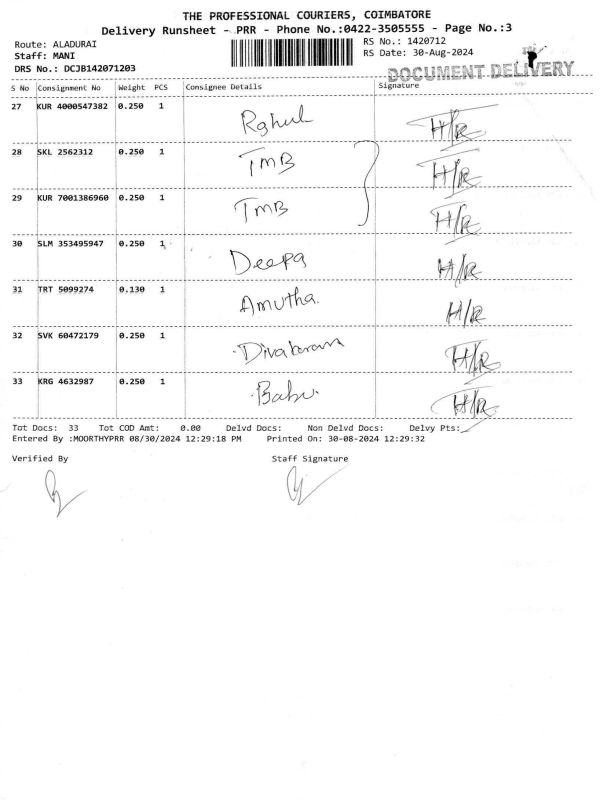 THE PROFESSIONAL COURIERS, COIMBATORE
Delivery Runsheet - PRR - Phone No.:0422-3505555 - Page No.:3
Route: ALADURAI RS No.: 1420712
Staff: MANI RS Date: 30-Aug-2024
DRS No.: DCJB142071203
DOCUMENT DELIVERY
S No Consignment No Weight PCS Consignee Details Signature
27 KUR 4000547382 0.250 1 Rahul H/R
28 SKL 2562312 0.250 1 TMB H/R
29 KUR 7001386960 0.250 1 TMB H/R
30 SLM 353495947 0.250 1 Deepa H/R
31 TRT 5099274 0.130 1 Amutha. H/R
32 SVK 60472179 0.250 1 Divakaran H/R
33 KRG 4632987 0.250 1 Babu. H/R
Tot Docs: 33 Tot COD Amt: 0.00 Delvd Docs: Non Delvd Docs: Delvy Pts:
Entered By :MOORTHYPRR 08/30/2024 12:29:18 PM Printed On: 30-08-2024 12:29:32
Verified By Staff Signature